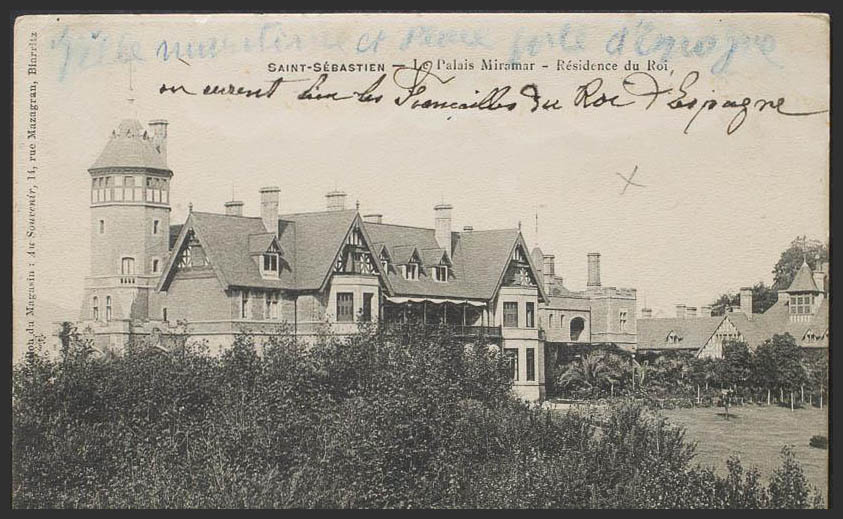 Ville maritime et Place forte d'Espagne
SAINT-SÉBASTIEN — Le Palais Miramar - Résidence du Roi
ou eurent lieu les Fiancailles du Roi d'Espagne
du Magasin : Au Souvenir, 14, rue Mazagran, Biarritz